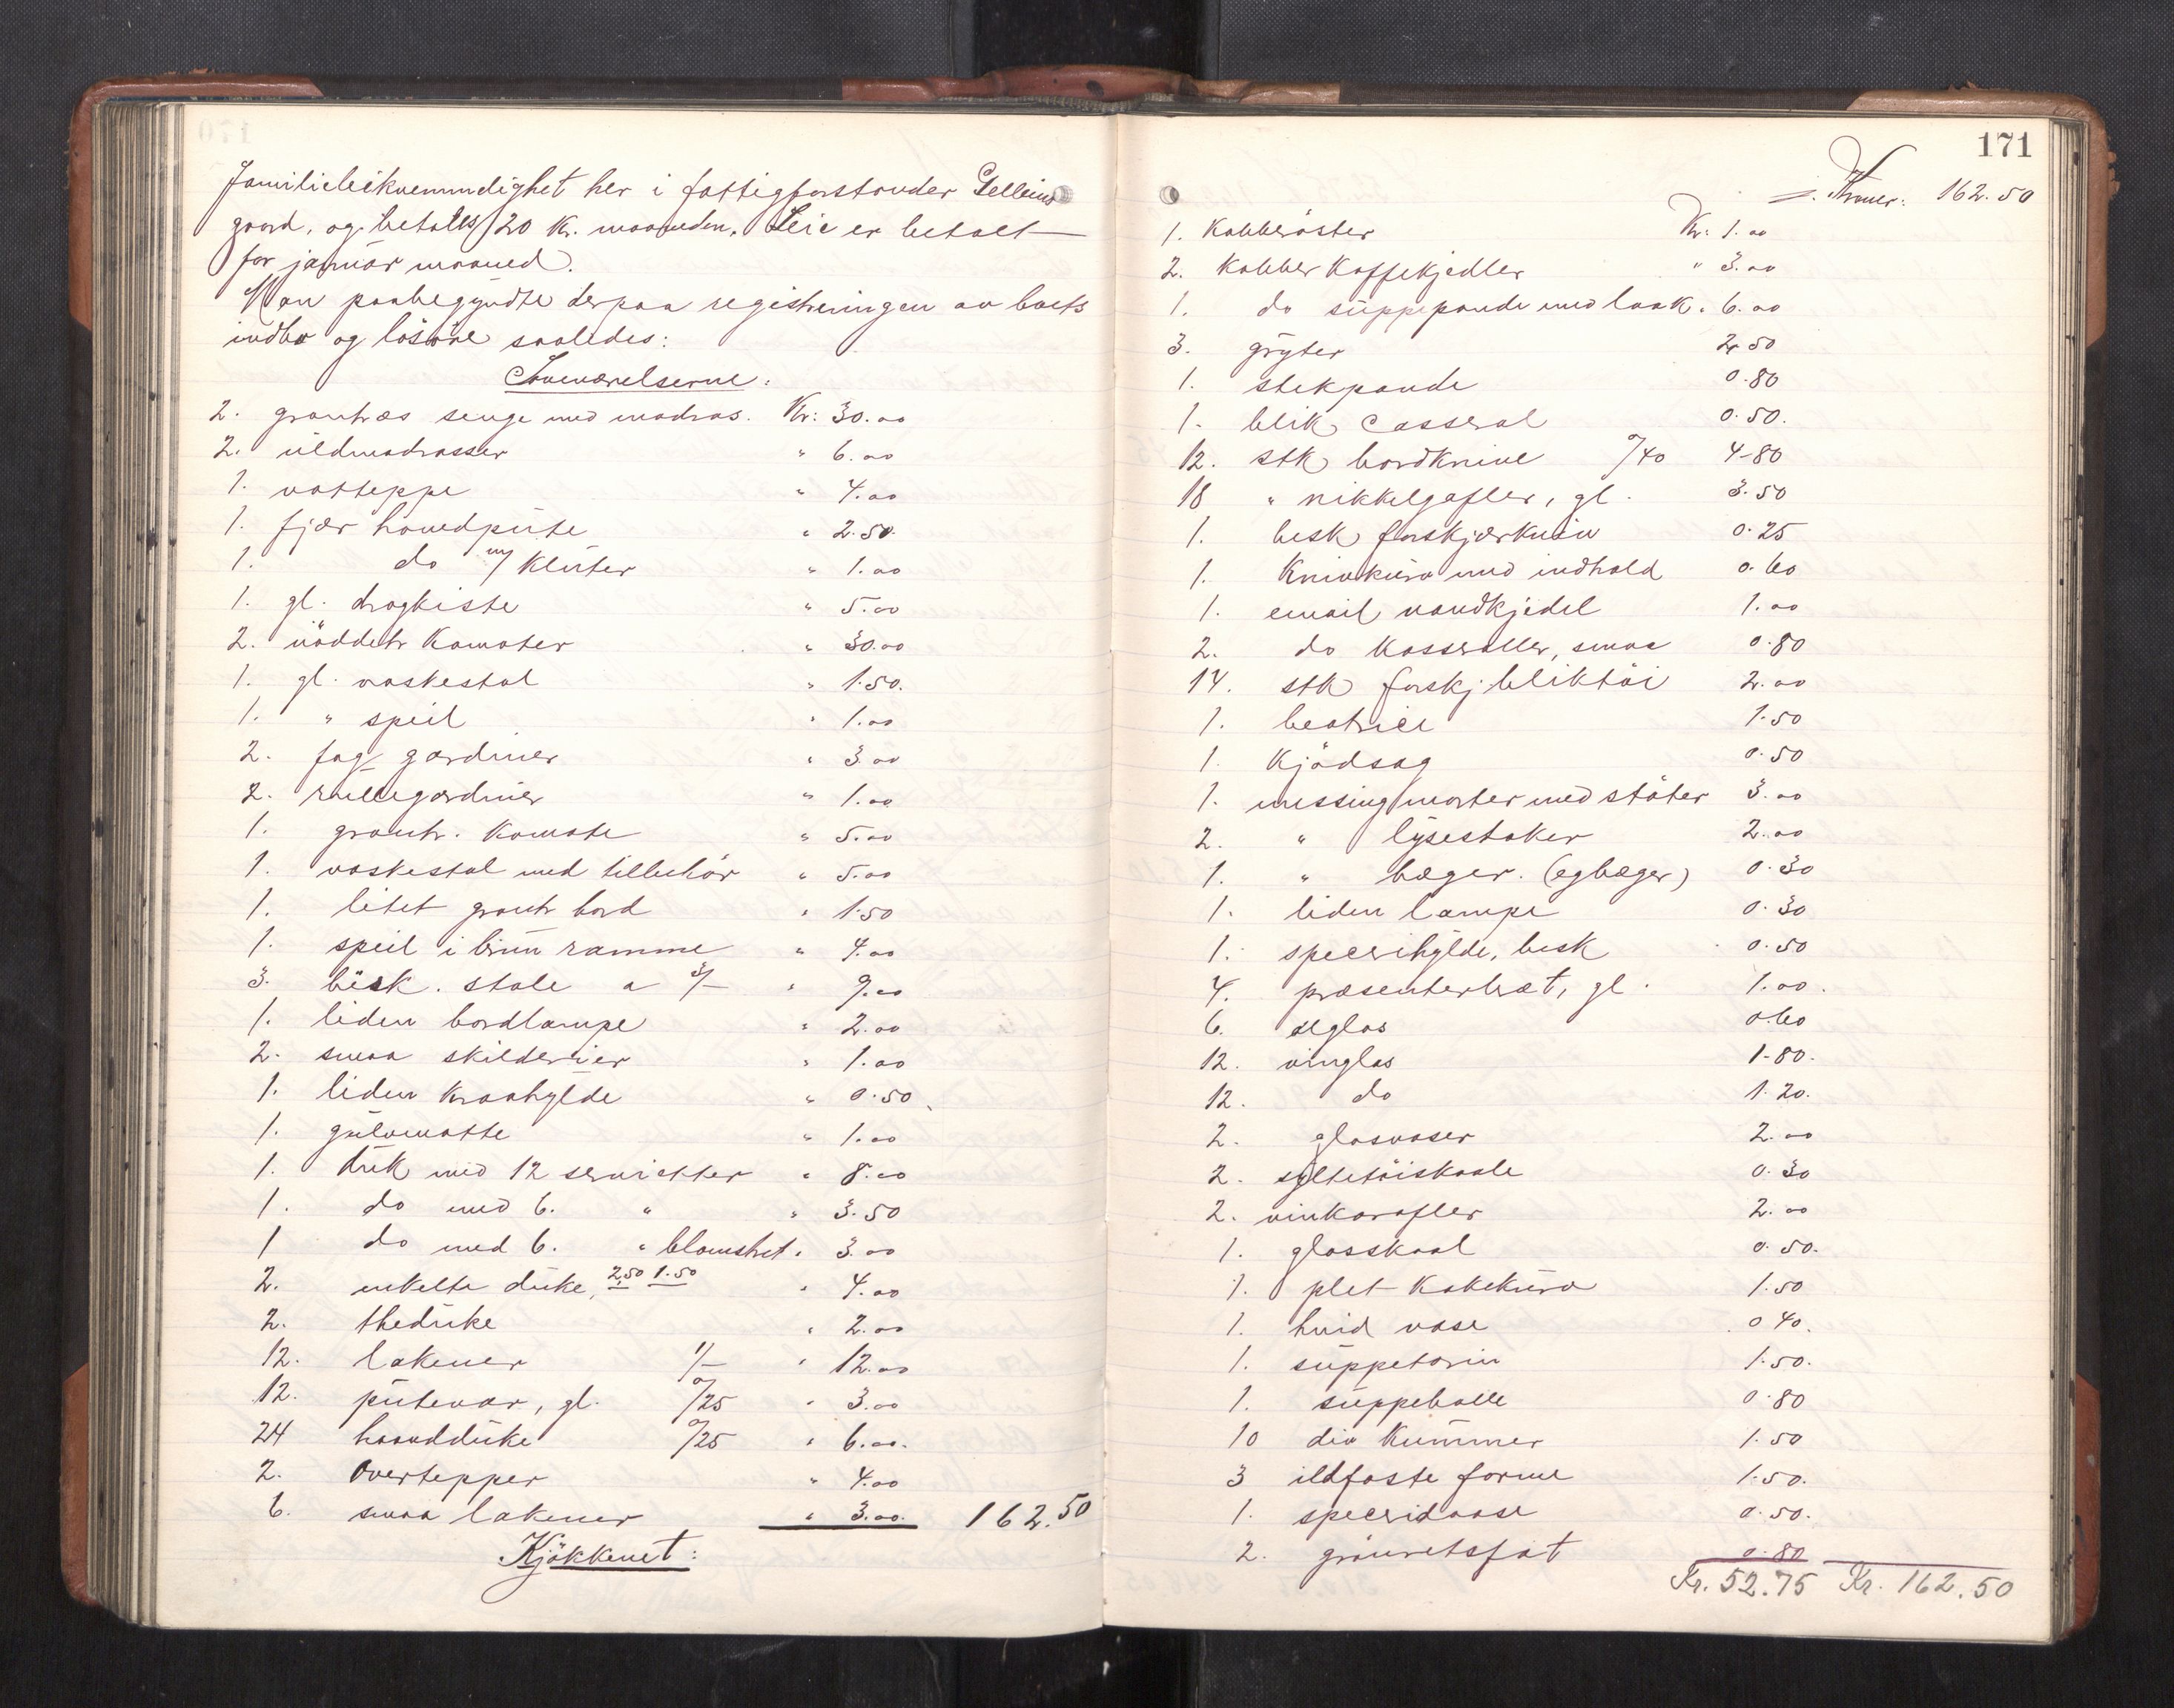 Familiebekvemmelighet her i fattigforstander Gelleins
gaard, og betales 120 Kr. maaneden. Leie er betalt
for januar maaned.
Man paabegyndte derpaa registreringen av boets
indbo og løsøre saaledes:
Soveværelserne:
2. grantræs senge med madras. Kr: 30.00
2. uldmadrasser " 6.00
1. vatteppe " 4.00
1. fjær hovedpute " 2.50.
1. do m/ kluter " 1.00
1. gl. dragkiste " 5.00
2. nøddetr Komoter " 30.00
1. gl. vaskestol " 1.50.
1. " speil " 1.00
2. fag gardiner " 3.00
2. rullegardiner " 1.00
1. grantr. Komote " 5.00
1. vaskestol med tilbehør " 5.00
1. litet grantr bord " 1.50
1. speil i brun ramme " 4.00
3. besk. stole a 3/- " 9.00
1. liden bordlampe " 2.00
2. smaa skilderier " 1.00
1. liden kraahylde " 0.50.
1. gulvmatte " 1.00
1. duk med 12 servietter " 8.00
1. do med 6. " " 3.50
1 do med 6. " blomstret " 3.00
2. enkelte duke, 2,50 1.50 " 4.00
2. theduke " 2.00
12. lakener 1/- " 12.00
12. putevar, gl. 0/25 " 3.00
24 haandduke 0/25 " 6.00.
2. Overtepper " 4.00
6. smaa lakener " 3.00. 162.50
Kjøkkenet:
171
Kroner: 162.50
1. Kobberøster Kr. 1.00
2. Kobber Kaffekjedler " 3.00
1. do suppepande med laak " 6.00
3. gryter 2.50
1. stekpande 0.80
1. blik Casserol 0.50.
12. stk bordknive 0/40 4-80
18 " nikkelgafler, gl. 3.50
1. besk forskjærkniv 0.25
1. Knivkurv med indhold 0.60
1. email vandkjedel 1.00
2. do Kasseroller, smaa 0.80
14. stk forskj. bliktøi 2.00
1. beatrice 1.50
1. Kjødsag 0.50
1. messingmorter med støter 3.00
2. " lysestaker 2.00
1. " bæger. (egbæger) 0.30
1. liden lampe 0.30
1. speserihylde, besk 0.50
4. præsenterbræt, gl. 1.00.
6. ølglas 0.60
12. vinglas 1-80.
12. do 1.20.
2. glasvaser 2.00
2. syltetøiskaale 0.30
2. vinkarafler 2.00
1. glasskaal 0.50.
1. plet Kakekurv 1.50
1. hvid vase 0 40.
1. suppeterin 1.50.
1. suppebolle 0.80
10 div Kummer 1.50
3 ildfaste forme 1.50.
1. speseridaase 0.50.
2. grønretsfat 0.80
Kr. 52.75 Kr. 162.50